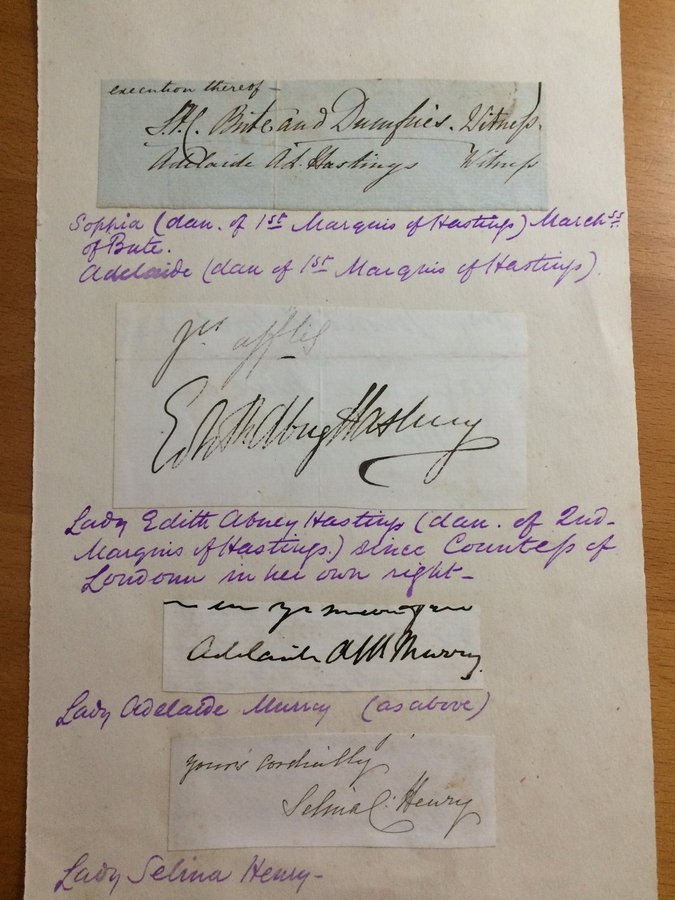 execution thereof —
S.F.C. Bute and Dumfries. Witness.
Adelaide A.L. Hastings Witness
Sophia (dau. of 1st Marquis of Hastings) Marchss
of Bute.
Adelaide (dau of 1st Marquis of Hastings).
yrs affly
Edith Abney Hastings
Lady Edith Abney Hastings (dau. of 2nd-
Marquis of Hastings.) since Countess of
Loudoun in her own right—
Adelaide Murray.
Lady Adelaide Murray (as above)
yours cordially
Selina C: Henry
Lady Selina Henry-